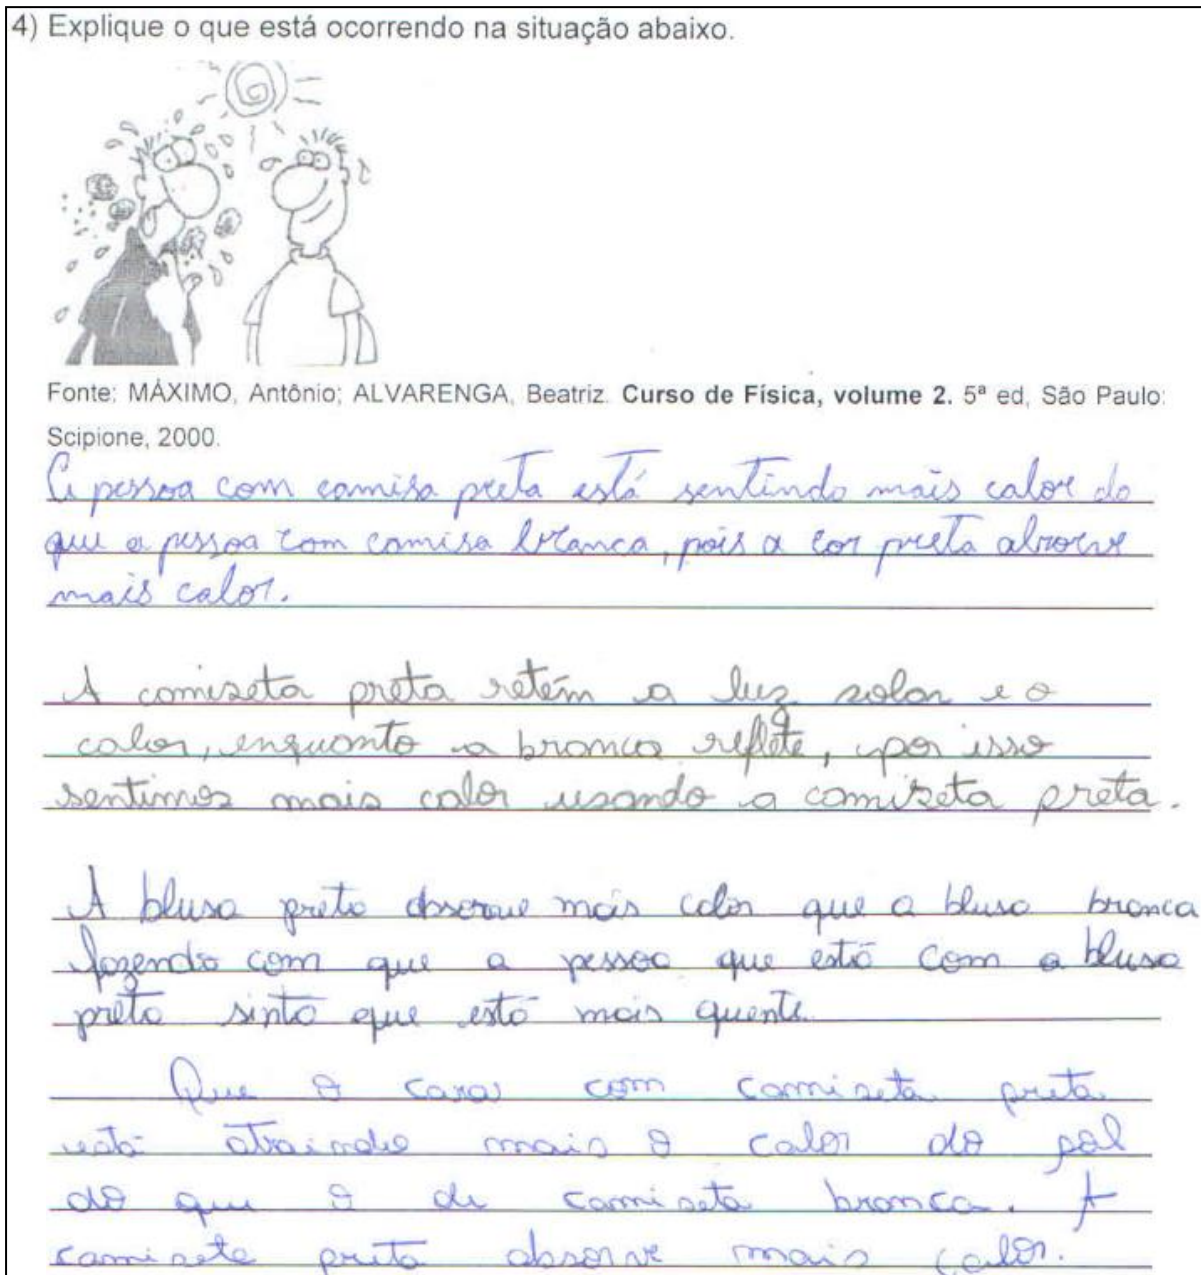 4) Explique o que está ocorrendo na situação abaixo.
Fonte: MÁXIMO, Antônio; ALVARENGA, Beatriz. Curso de Física, volume 2. 5ª ed, São Paulo:
Scipione, 2000.
A pessoa com camisa preta está sentindo mais calor do
que a pessoa com camisa branca, pois a cor preta absorve
mais calor.
A camiseta preta retém a luz solar e o
calor, enquanto a branca reflete, por isso
sentimos mais calor usando a camizeta preta.
A blusa preta absorve mais calor que a blusa branca
fazendo com que a pessoa que está com a blusa
preta sinta que está mais quente.
Que o cara com camiseta preta
está atraindo mais o calor do sol
do que o de camiseta branca. A
camiseta preta absorve mais calor.